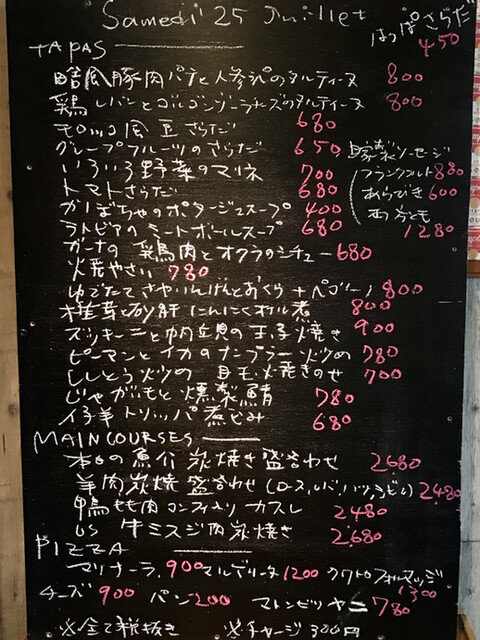 Samedi 25 Juillet
はっぱさらだ 450
TAPAS
豚肉パテと人参ラペのタルティーヌ 800
鶏レバーとゴルゴンゾーラチーズのタルティーヌ 800
モロッコ風豆さらだ 680
グレープフルーツのさらだ 650
いろいろ野菜のマリネ 700
トマトさらだ 680
かぼちゃのポタージュスープ 400
ラトビアのミートボールスープ 680
ガーナの鶏肉とオクラのシチュー 680
炭焼やさい 780
ゆでたてさやいんげんとおくら + ペコリーノ 800
椎茸と砂肝にんにくオイル煮 800
ズッキーニと帆立貝の玉子焼き 900
ピーマンとイカのナンプラー炒め 780
ししとう炒めの目玉焼きのせ 700
じゃがいもと燻製鯖 780
仔羊トリッパ煮こみ 680
豚製ソーセージ
フランクフルト 880
あらびき 600
両方とも 1280
MAIN COURSES
本日の魚介炭焼き盛合わせ 2680
羊肉炭焼盛合わせ 2480
鴨もも肉コンフィ入りカスレ 2480
US 牛ミスジ肉炭焼き 2680
PIZZA
マリナーラ 900 マルゲリータ 1200 クワトロフォルマッジ 1300
チーズ 900 パン 200 マトンビリヤニ 780
※全て税抜き ※チャージ 300円